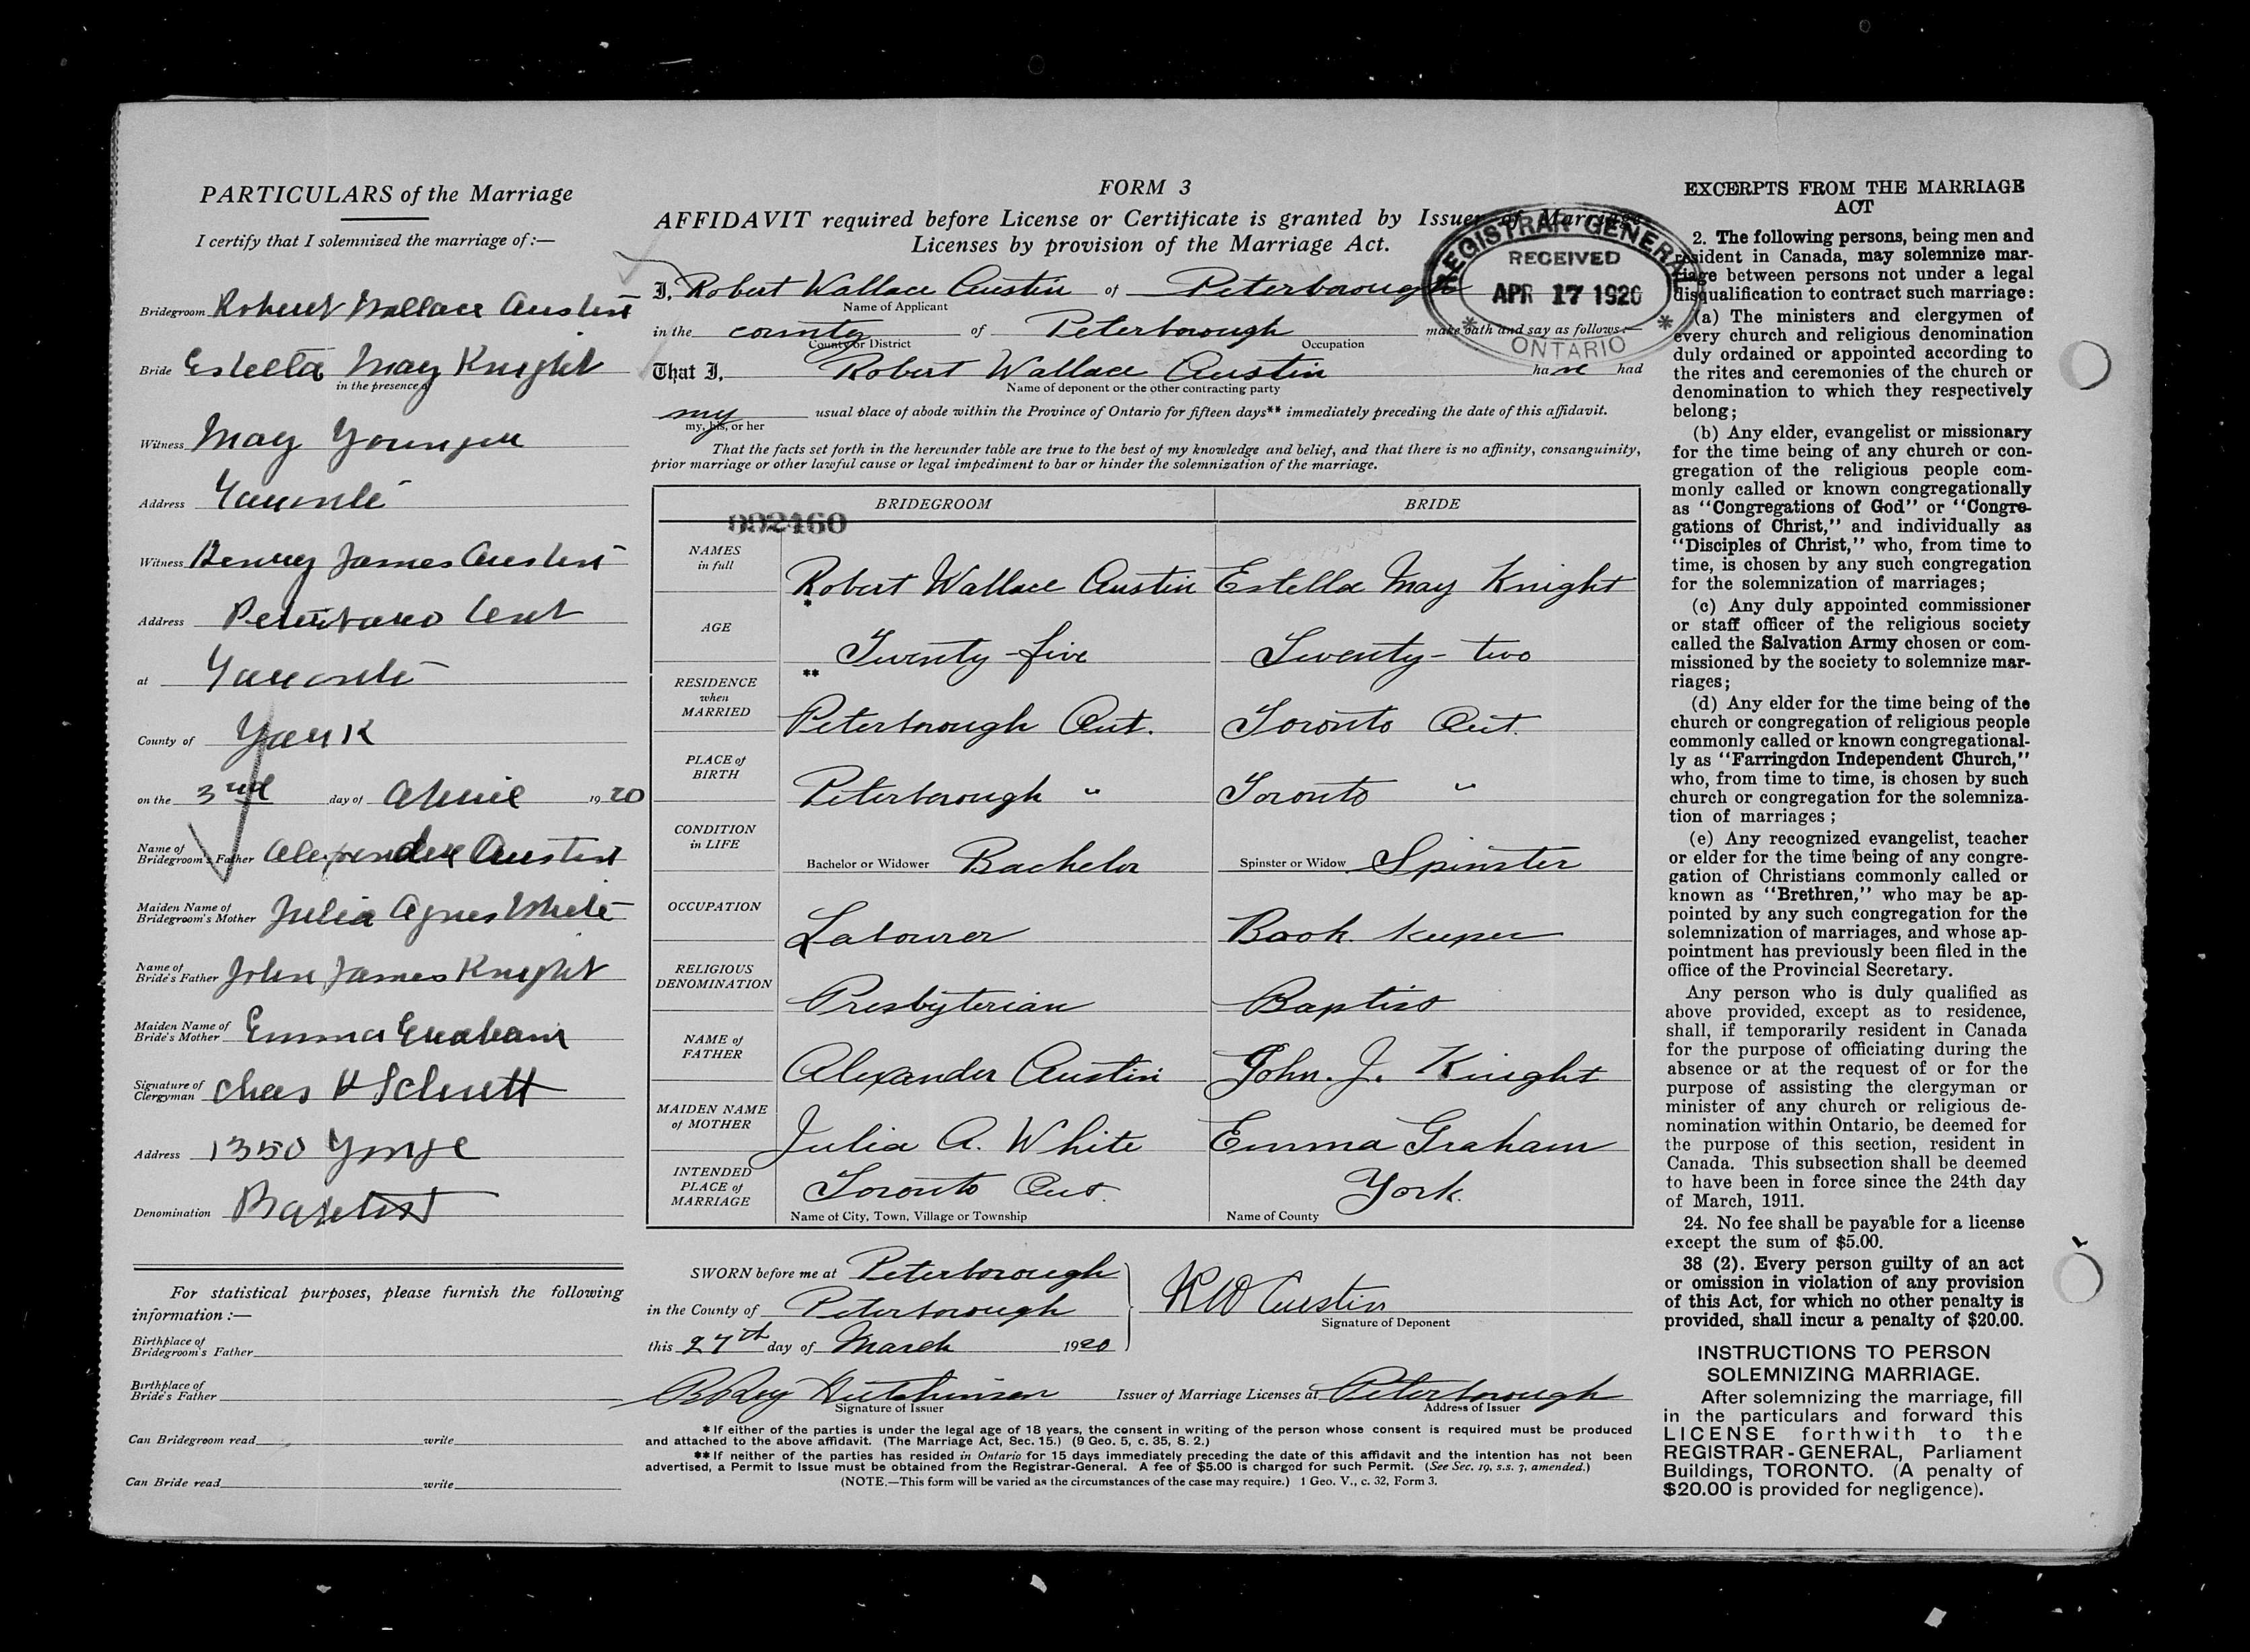 PARTICULARS of the Marriage
I certify that I solemnized the marriage of:—
Bridegroom Robert Wallace Austin
Bride Estella May Knight
in the presence of
Witness May Younger
Address Toronto
Witness Henry James Austin
Address Peterboro Ont
at Toronto
County of York
on the 3rd day of April 1920
Name of Bridegroom's Father Alexander Austin
Maiden Name of Bridegroom's Mother Julia Agnes White
Name of Bride's Father John James Knight
Maiden Name of Bride's Mother Emma Graham
Signature of Clergyman Chas H Schutt
Address 1350 Yonge
Denomination Baptist
For statistical purposes, please furnish the following
information :—
Birthplace of Bridegroom's Father
Birthplace of Bride's Father
Can Bridegroom read write
Can Bride read write
FORM 3
AFFIDAVIT required before License or Certificate is granted by Issuer of Marriage
Licenses by provision of the Marriage Act.
REGISTRAR GENERAL
RECEIVED
APR 17 1920
ONTARIO
I, Robert Wallace Austin of Peterborough
Name of Applicant
in the county of Peterborough make oath and say as follows:—
County or District Occupation
That I, Robert Wallace Austin have had
Name of deponent or the other contracting party
my usual place of abode within the Province of Ontario for fifteen days** immediately preceding the date of this affidavit.
my, his, or her
That the facts set forth in the hereunder table are true to the best of my knowledge and belief, and that there is no affinity, consanguinity,
prior marriage or other lawful cause or legal impediment to bar or hinder the solemnization of the marriage.
BRIDEGROOM BRIDE
002460
NAMES in full Robert Wallace Austin Estella May Knight
*
AGE Twenty-five Twenty-two
**
RESIDENCE when MARRIED Peterborough Ont. Toronto Ont.
PLACE of BIRTH Peterborough " Toronto "
CONDITION in LIFE Bachelor or Widower Bachelor Spinster or Widow Spinster
OCCUPATION Labourer Book keeper
RELIGIOUS DENOMINATION Presbyterian Baptist
NAME of FATHER Alexander Austin John. J. Knight
MAIDEN NAME of MOTHER Julia A. White Emma Graham
INTENDED PLACE of MARRIAGE Toronto Ont. York.
Name of City, Town, Village or Township Name of County
SWORN before me at Peterborough
in the County of Peterborough
this 27th day of March 1920
R W Austin
Signature of Deponent
Roy Hutchinson Issuer of Marriage Licenses at Peterborough
Signature of Issuer Address of Issuer
*If either of the parties is under the legal age of 18 years, the consent in writing of the person whose consent is required must be produced
and attached to the above affidavit. (The Marriage Act, Sec. 15.) (9 Geo. 5, c. 35, S. 2.)
**If neither of the parties has resided in Ontario for 15 days immediately preceding the date of this affidavit and the intention has not been
advertised, a Permit to Issue must be obtained from the Registrar-General. A fee of $5.00 is charged for such Permit. (See Sec. 19, s.s. 3, amended.)
(NOTE.—This form will be varied as the circumstances of the case may require.) 1 Geo. V., c. 32, Form 3.
EXCERPTS FROM THE MARRIAGE
ACT
2. The following persons, being men and
resident in Canada, may solemnize mar-
riage between persons not under a legal
disqualification to contract such marriage:
(a) The ministers and clergymen of
every church and religious denomination
duly ordained or appointed according to
the rites and ceremonies of the church or
denomination to which they respectively
belong;
(b) Any elder, evangelist or missionary
for the time being of any church or con-
gregation of the religious people com-
monly called or known congregationally
as "Congregations of God" or "Congre-
gations of Christ," and individually as
"Disciples of Christ," who, from time to
time, is chosen by any such congregation
for the solemnization of marriages;
(c) Any duly appointed commissioner
or staff officer of the religious society
called the Salvation Army chosen or com-
missioned by the society to solemnize mar-
riages;
(d) Any elder for the time being of the
church or congregation of religious people
commonly called or known congregational-
ly as "Farringdon Independent Church,"
who, from time to time, is chosen by such
church or congregation for the solemniza-
tion of marriages ;
(e) Any recognized evangelist, teacher
or elder for the time being of any congre-
gation of Christians commonly called or
known as "Brethren," who may be ap-
pointed by any such congregation for the
solemnization of marriages, and whose ap-
pointment has previously been filed in the
office of the Provincial Secretary.
Any person who is duly qualified as
above provided, except as to residence,
shall, if temporarily resident in Canada
for the purpose of officiating during the
absence or at the request of or for the
purpose of assisting the clergyman or
minister of any church or religious de-
nomination within Ontario, be deemed for
the purpose of this section, resident in
Canada. This subsection shall be deemed
to have been in force since the 24th day
of March, 1911.
24. No fee shall be payable for a license
except the sum of $5.00.
38 (2). Every person guilty of an act
or omission in violation of any provision
of this Act, for which no other penalty is
provided, shall incur a penalty of $20.00.
INSTRUCTIONS TO PERSON
SOLEMNIZING MARRIAGE.
After solemnizing the marriage, fill
in the particulars and forward this
LICENSE forthwith to the
REGISTRAR-GENERAL, Parliament
Buildings, TORONTO. (A penalty of
$20.00 is provided for negligence).